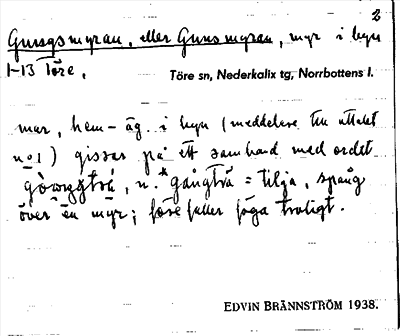 2
Gunsgsmyran, eller Gunsmyran, myr i byn
1-13 Töre.
Töre sn, Nederkalix tg, Norrbottens l.
mar, hem-äg. i byn (meddelare till uttalet
nº 1) gissar på ett samband med ordet
n. *gångträ = tilja, spång
över en myr; förefaller föga troligt.
EDVIN BRÄNNSTRÖM 1938.